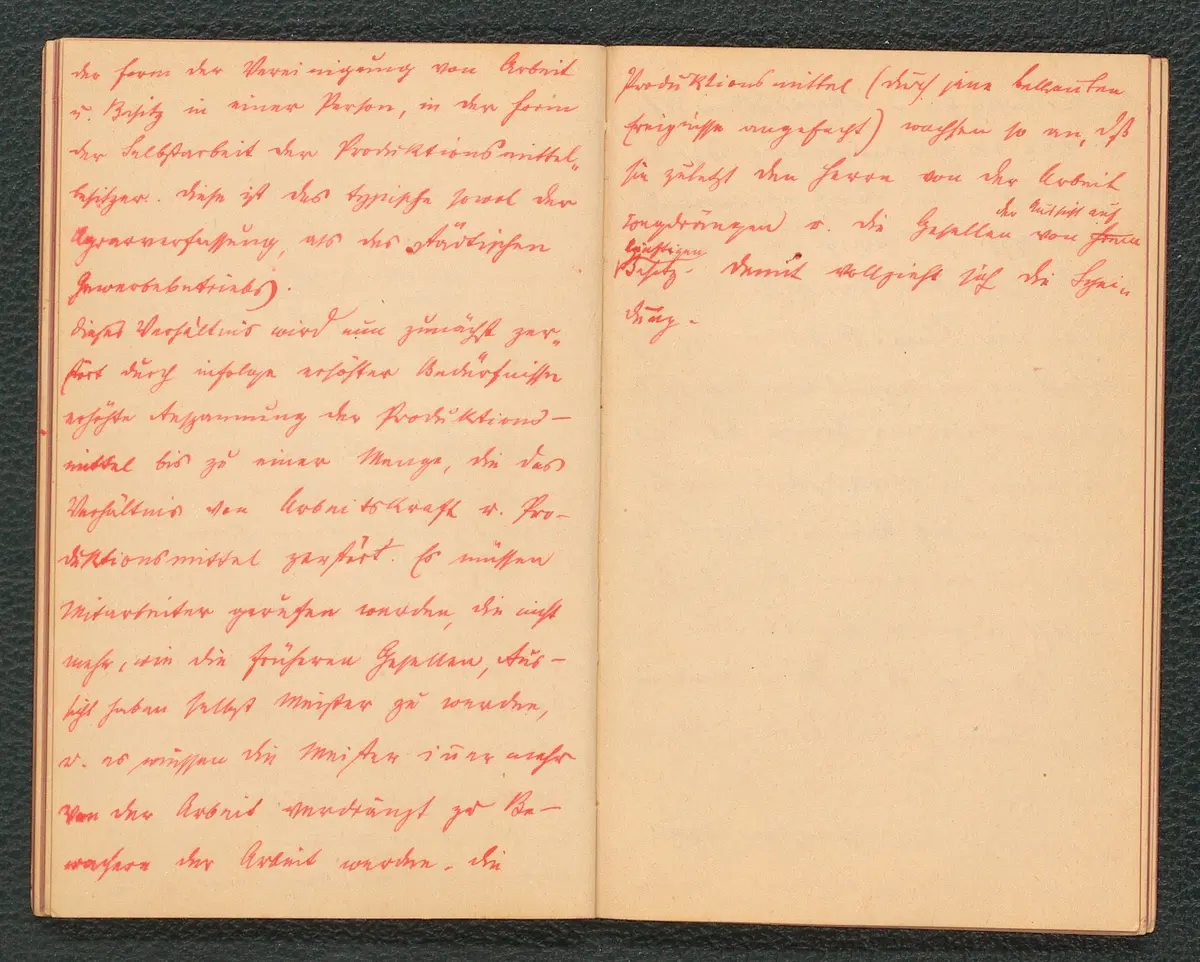 der Form der Vereinigung von Arbeit
u. Besitz in einer Person, in der Form
der Selbstarbeit der Produktionsmittel„
besitzer. Diese ist das typische sowol der
Agrarverfassung, als des städtischen
Gewerbebetriebs).
Dieses Verhältnis wird nun zunächst zer„
stört durch infolge erhöhter Bedürfnisse
erhöhte Anspannung der Produktions–
mittel bis zu einer Menge, die das
Verhältnis von Arbeitskraft u. Pro–
duktionsmittel zerstört. Es müssen
Mitarbeiter gerufen werden, die nicht
mehr, wie die früheren Gesellen, Aus–
sicht haben selbst Meister zu werden,
u. es müssen die Meister immer mehr
von der Arbeit verdrängt zu Be–
wachern der Arbeit werden. Die
Produktionsmittel (durch jene bekannten
Ereignisse angefacht) wachsen so an, dß
sie zuletzt den Herrn von der Arbeit
der Aussicht auf
wegdrängen u. die Gesellen von ihrem
künftigen
Besitz. Damit vollzieht sich die Schei„
dung.